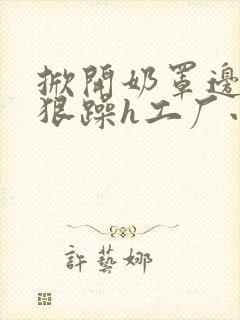 掀開奶罩邊
狠躁h工厂
許藝娜